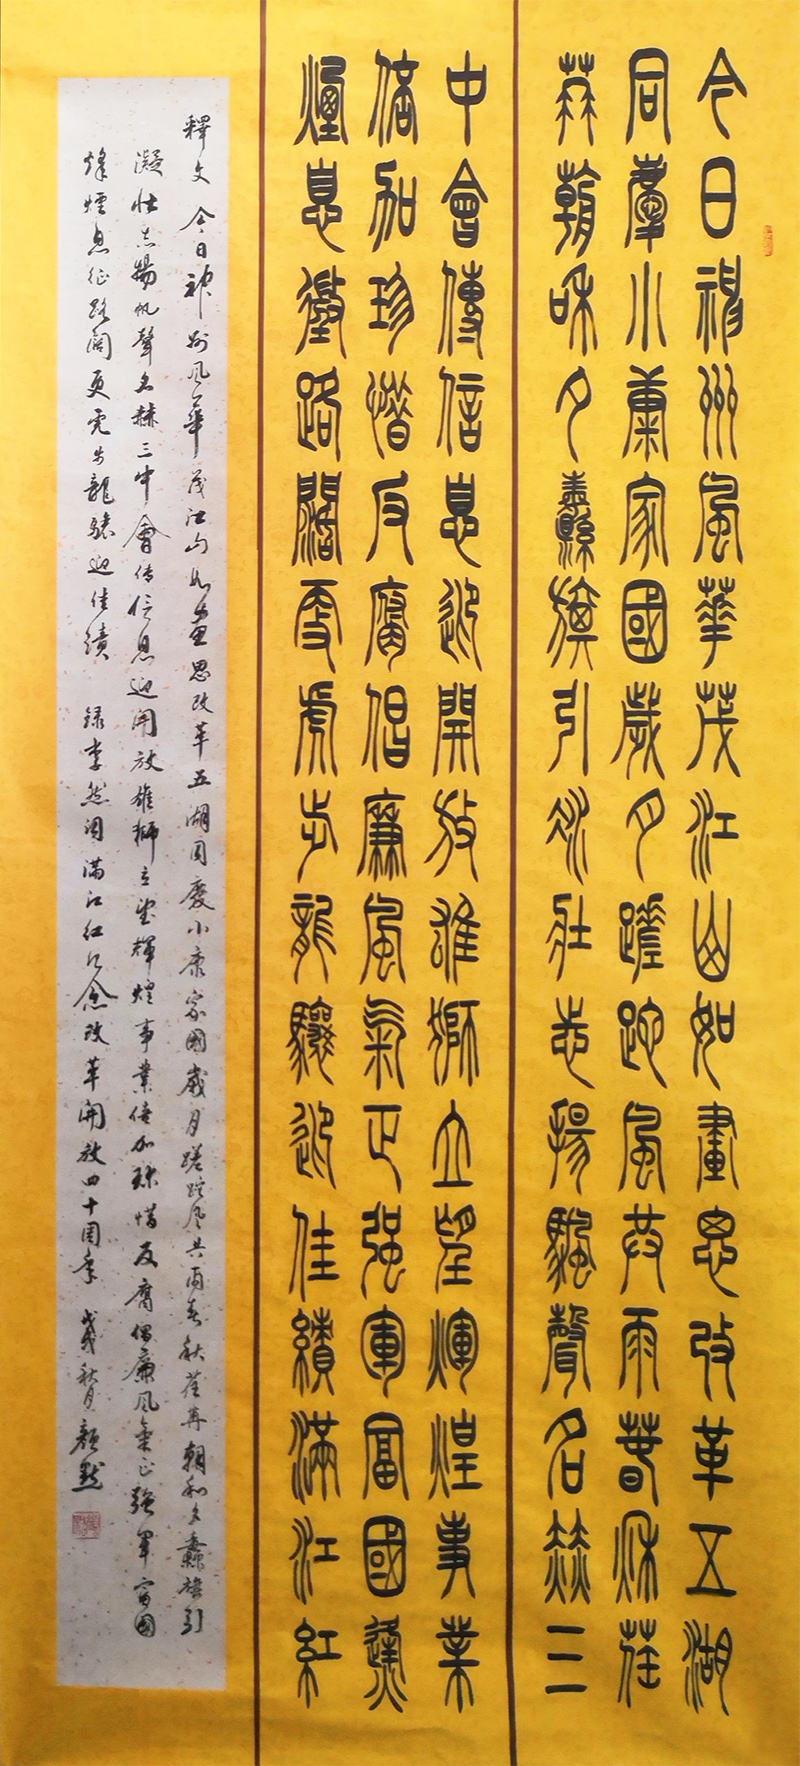 今日神州風華茂江山如畫思改革五湖
同慶小康家國歲月蹉跎風共雨春秋荏
苒朝和夕纛旗引凝壯志揚颿聲名赫三
中會傳信息迎開放雄獅立望輝煌事業
倍加珍惜反腐倡廉風氣正强軍富國烽
煙息徵路闊更虎步龍驤迎佳績滿江紅
釋文 今日神州风華茂江山如畫思改革五湖同慶小康家國歲月蹉跎风共雨春秋荏苒朝和夕纛旗引
凝壮志揚帆聲名赫三中會传信息迎開放雄獅立望輝煌事業倍加珍惜反腐倡廉风氣正強軍富國
烽煙息征路闊更虎步龍驤迎佳績 録李然词满江红纪念改革開放四十周年 戊戌秋月颜默